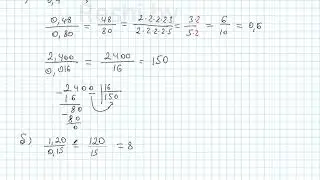 0,48/0,80 = 48/80 = 2·2·2·2·3/2·2·2·2·5 = 3·2/5·2 = 6/10 = 0,6
2,400/0,016 = 2400/16 = 150
-2400 |16
16 |150
-80
80
0
б) 1,20/0,15 = 120/15 = 8